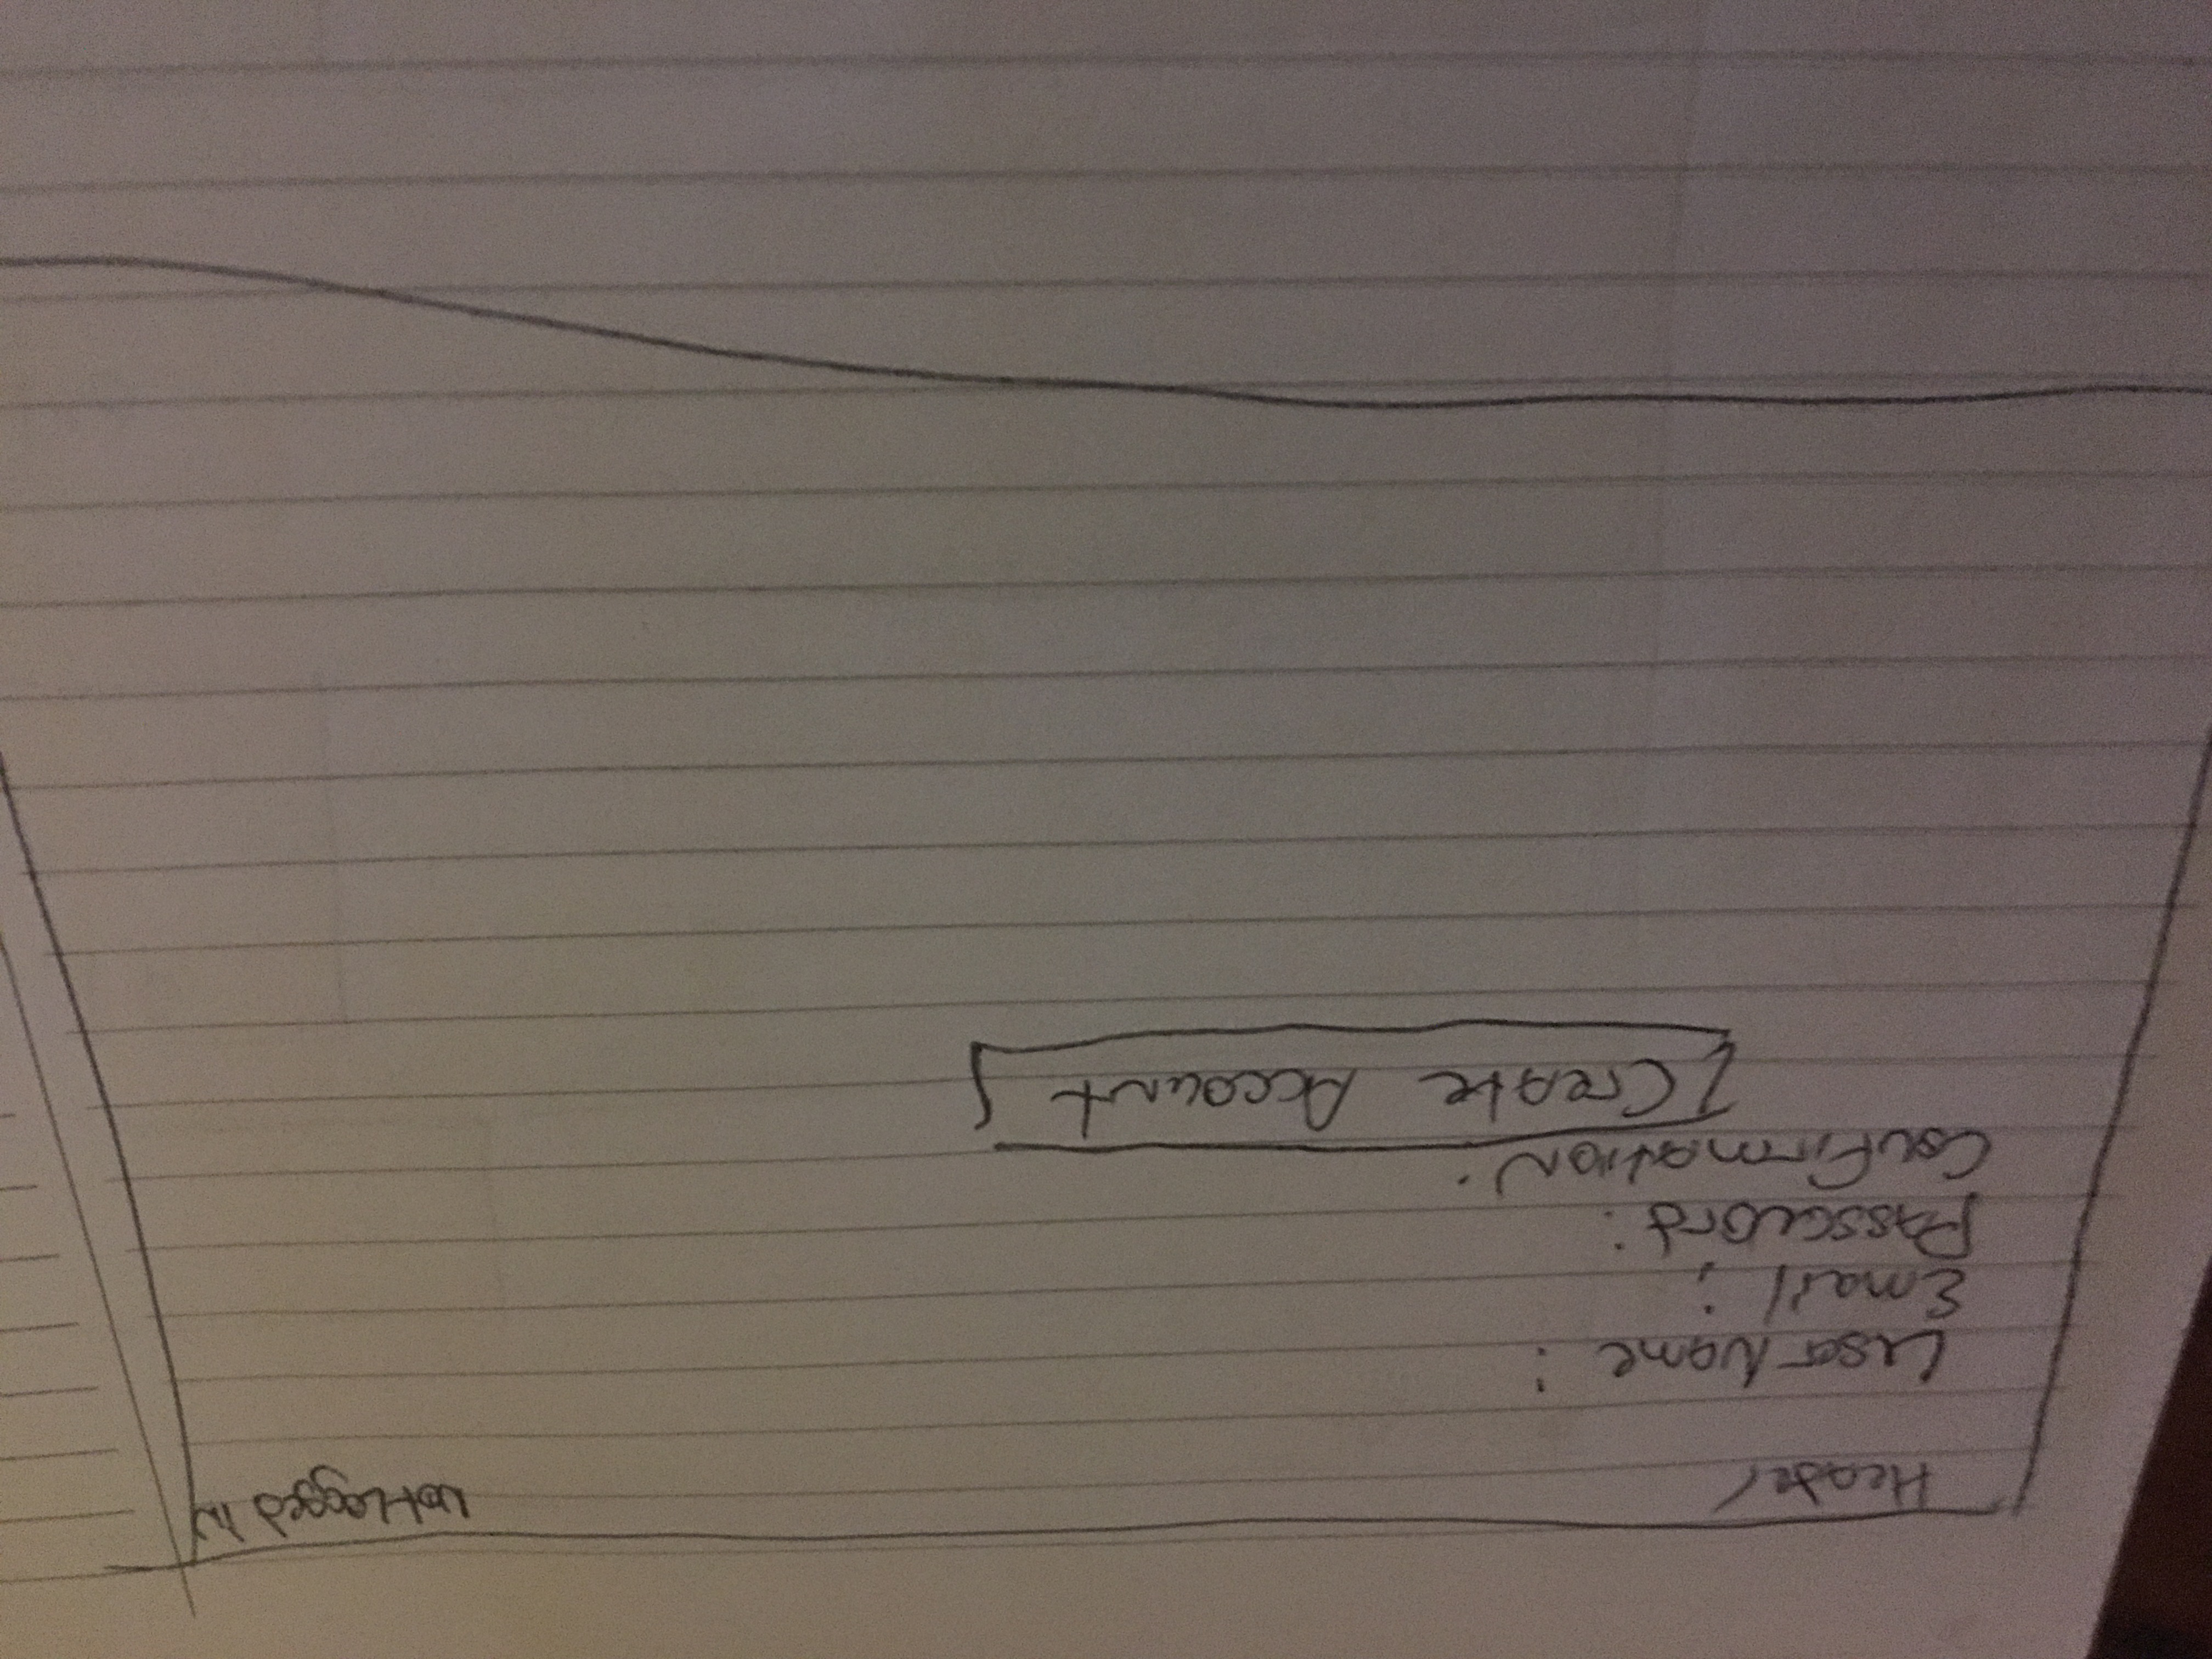 Header
Not Logged in
User Name :
Email ;
Password :
Confirmation :
Create Account